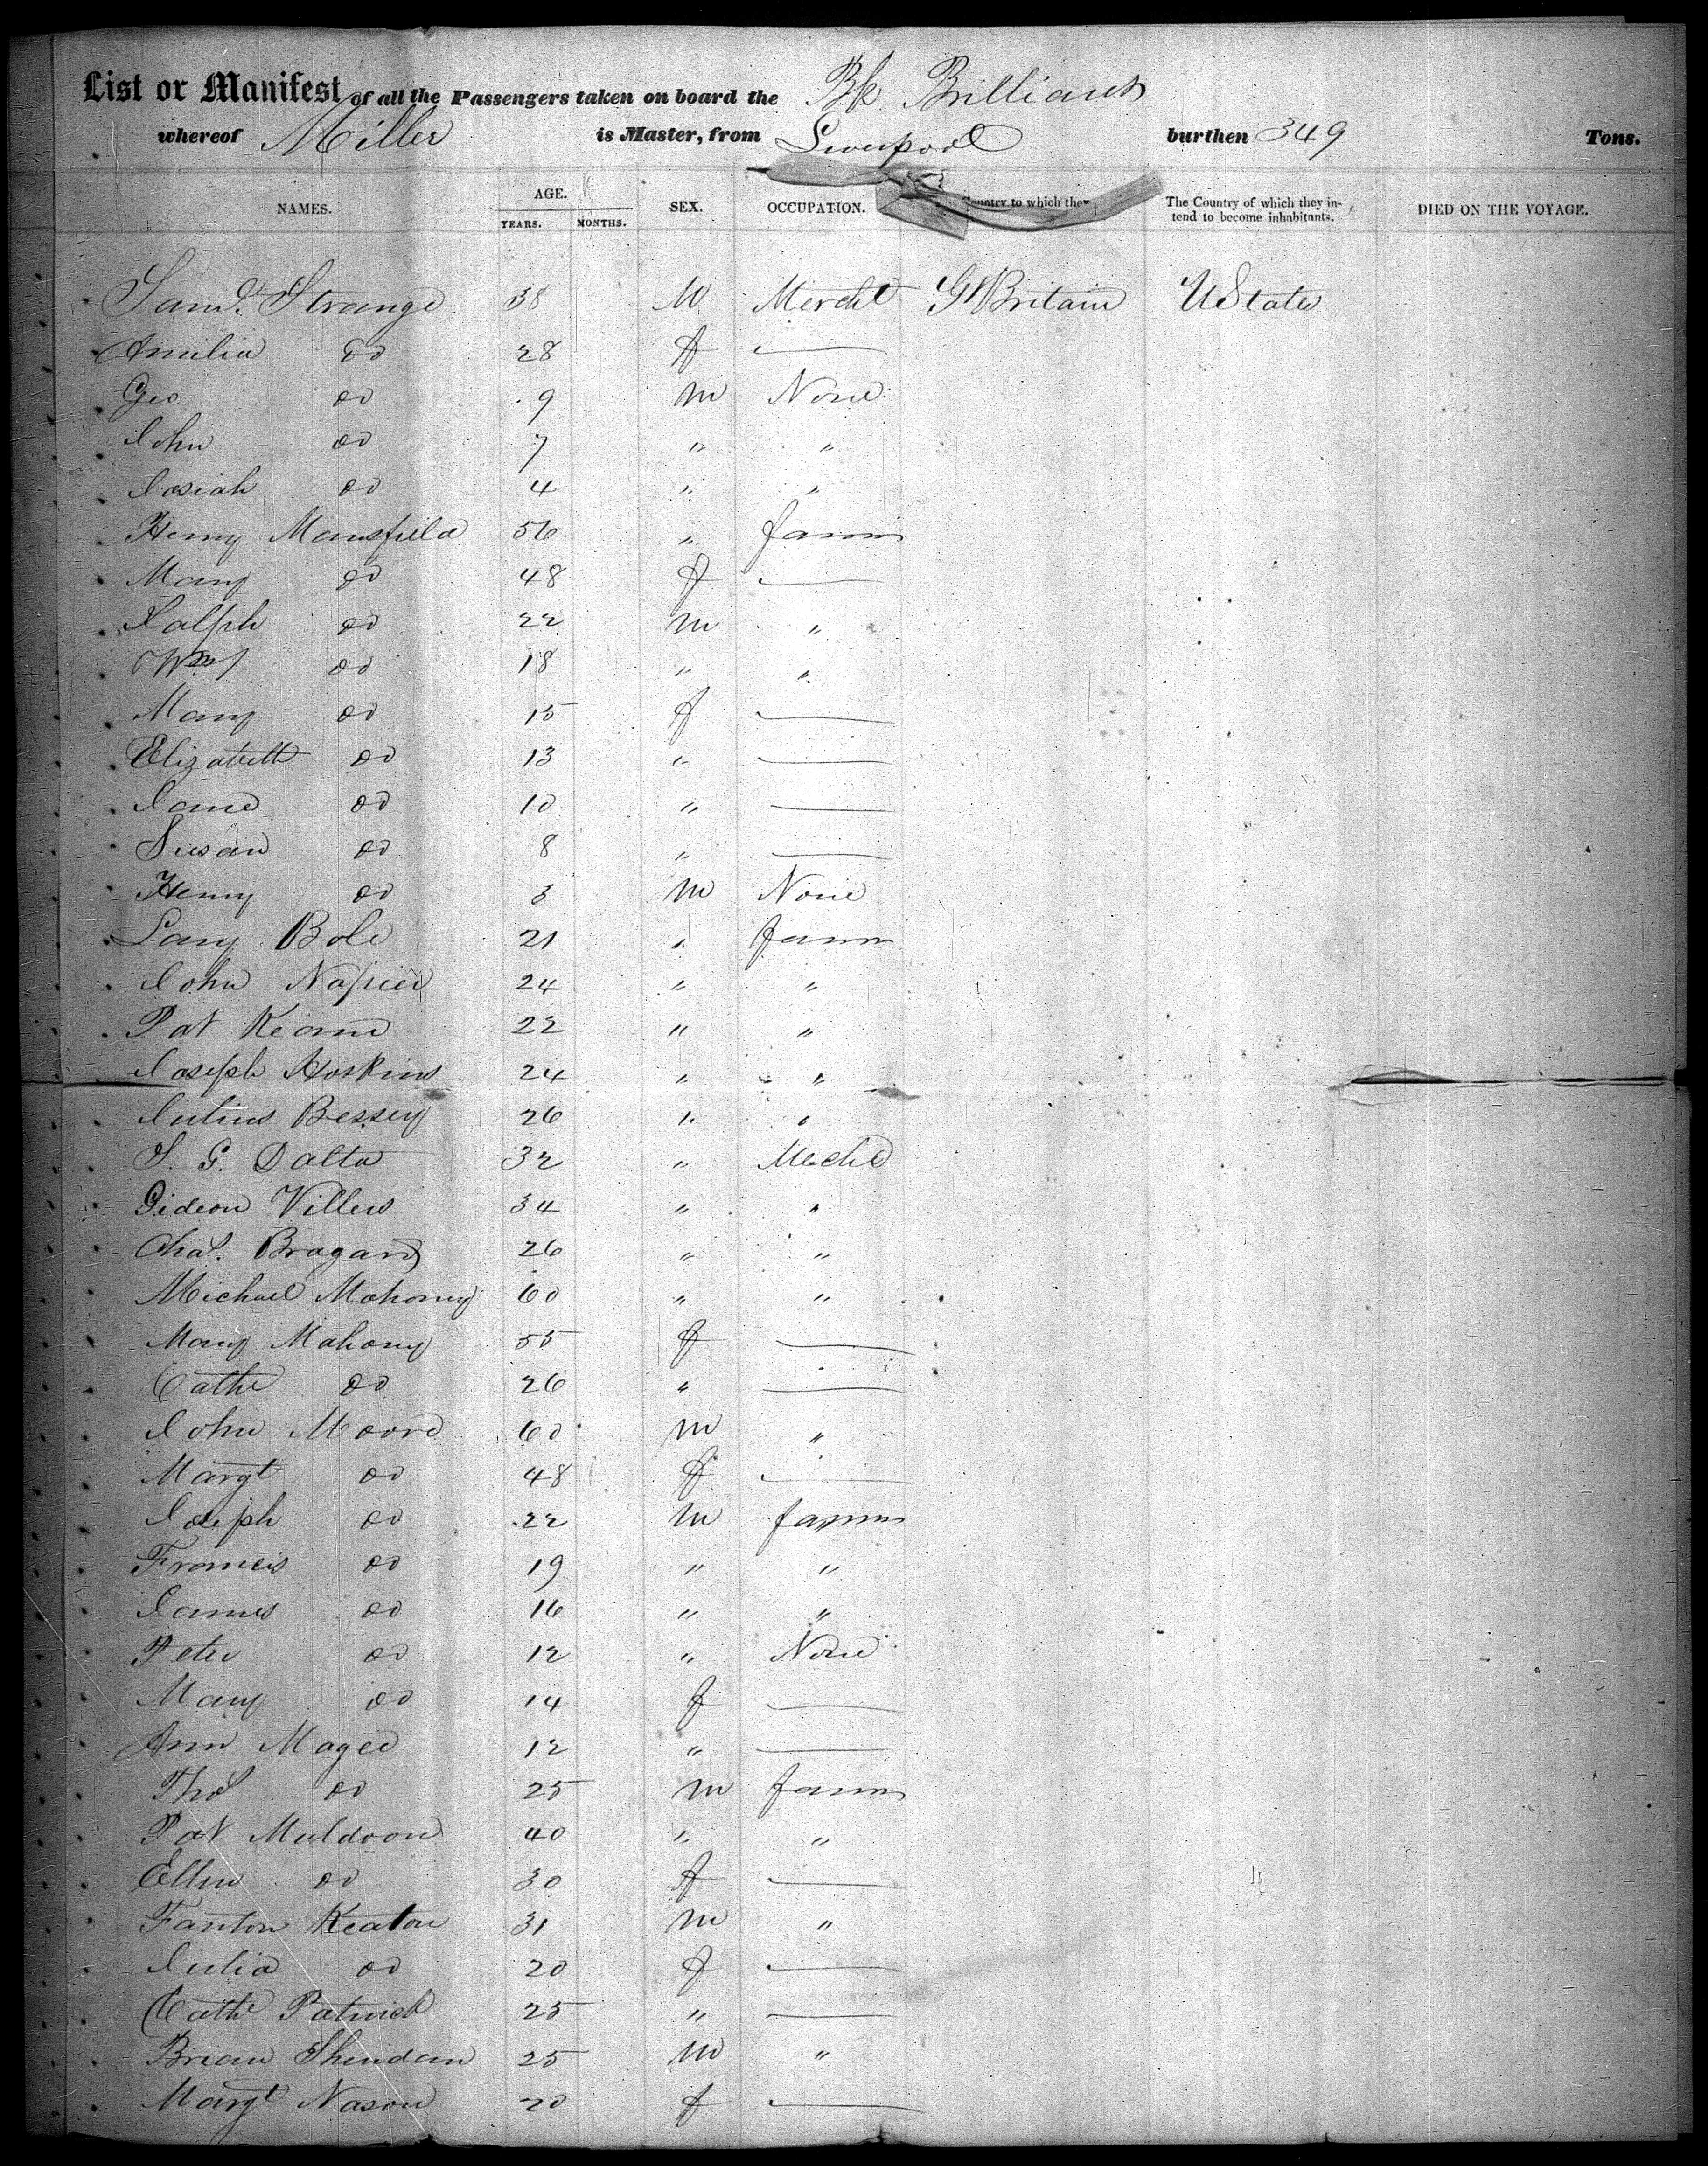 List or Manifest of all the Passengers taken on board the Bk Brilliant
whereof Miller is Master, from Liverpool burthen 349 Tons.
NAMES. AGE. YEARS. MONTHS. SEX. OCCUPATION. Country to which they The Country of which they in-tend to become inhabitants. DIED ON THE VOYAGE.
Saml. Strange 38 M Mercht Gt Britain U States
Amilia do 28 f —
Geo do 9 m None
John do 7 " "
Josiah do 4 " "
Henry Mansfield 56 " farmr
Mary do 48 f —
Ralph do 22 m "
Wm do 18 " "
Mary do 15 f —
Elizabeth do 13 " —
Jane do 10 " —
Susan do 8 " —
Henry do 3 m None
Bole 21 " farmr
John Napier 24 " "
Pat Keane 22 " "
Joseph Hoskins 24 " "
Julius Bessey 26 " "
S. G. Dalta 32 " Mecht
Gideon Villers 34 " "
Chas. Bragard 26 " "
Michael Mahoney 60 " "
Mary Mahony 55 f —
Cathe do 26 " —
John Moore 60 m "
Margt do 48 f —
Joseph do 22 m farmr
Francis do 19 " "
James do 16 " "
Peter do 12 " None
Mary do 14 f —
Ann Magee 12 " —
Thos do 25 m farmr
Pat Muldoon 40 " "
Ellen do 30 f —
Keaton 31 m "
Julia do 20 f —
Cathe Patrick 25 " —
Brian Sheridan 25 m "
Margt Nason 20 f —